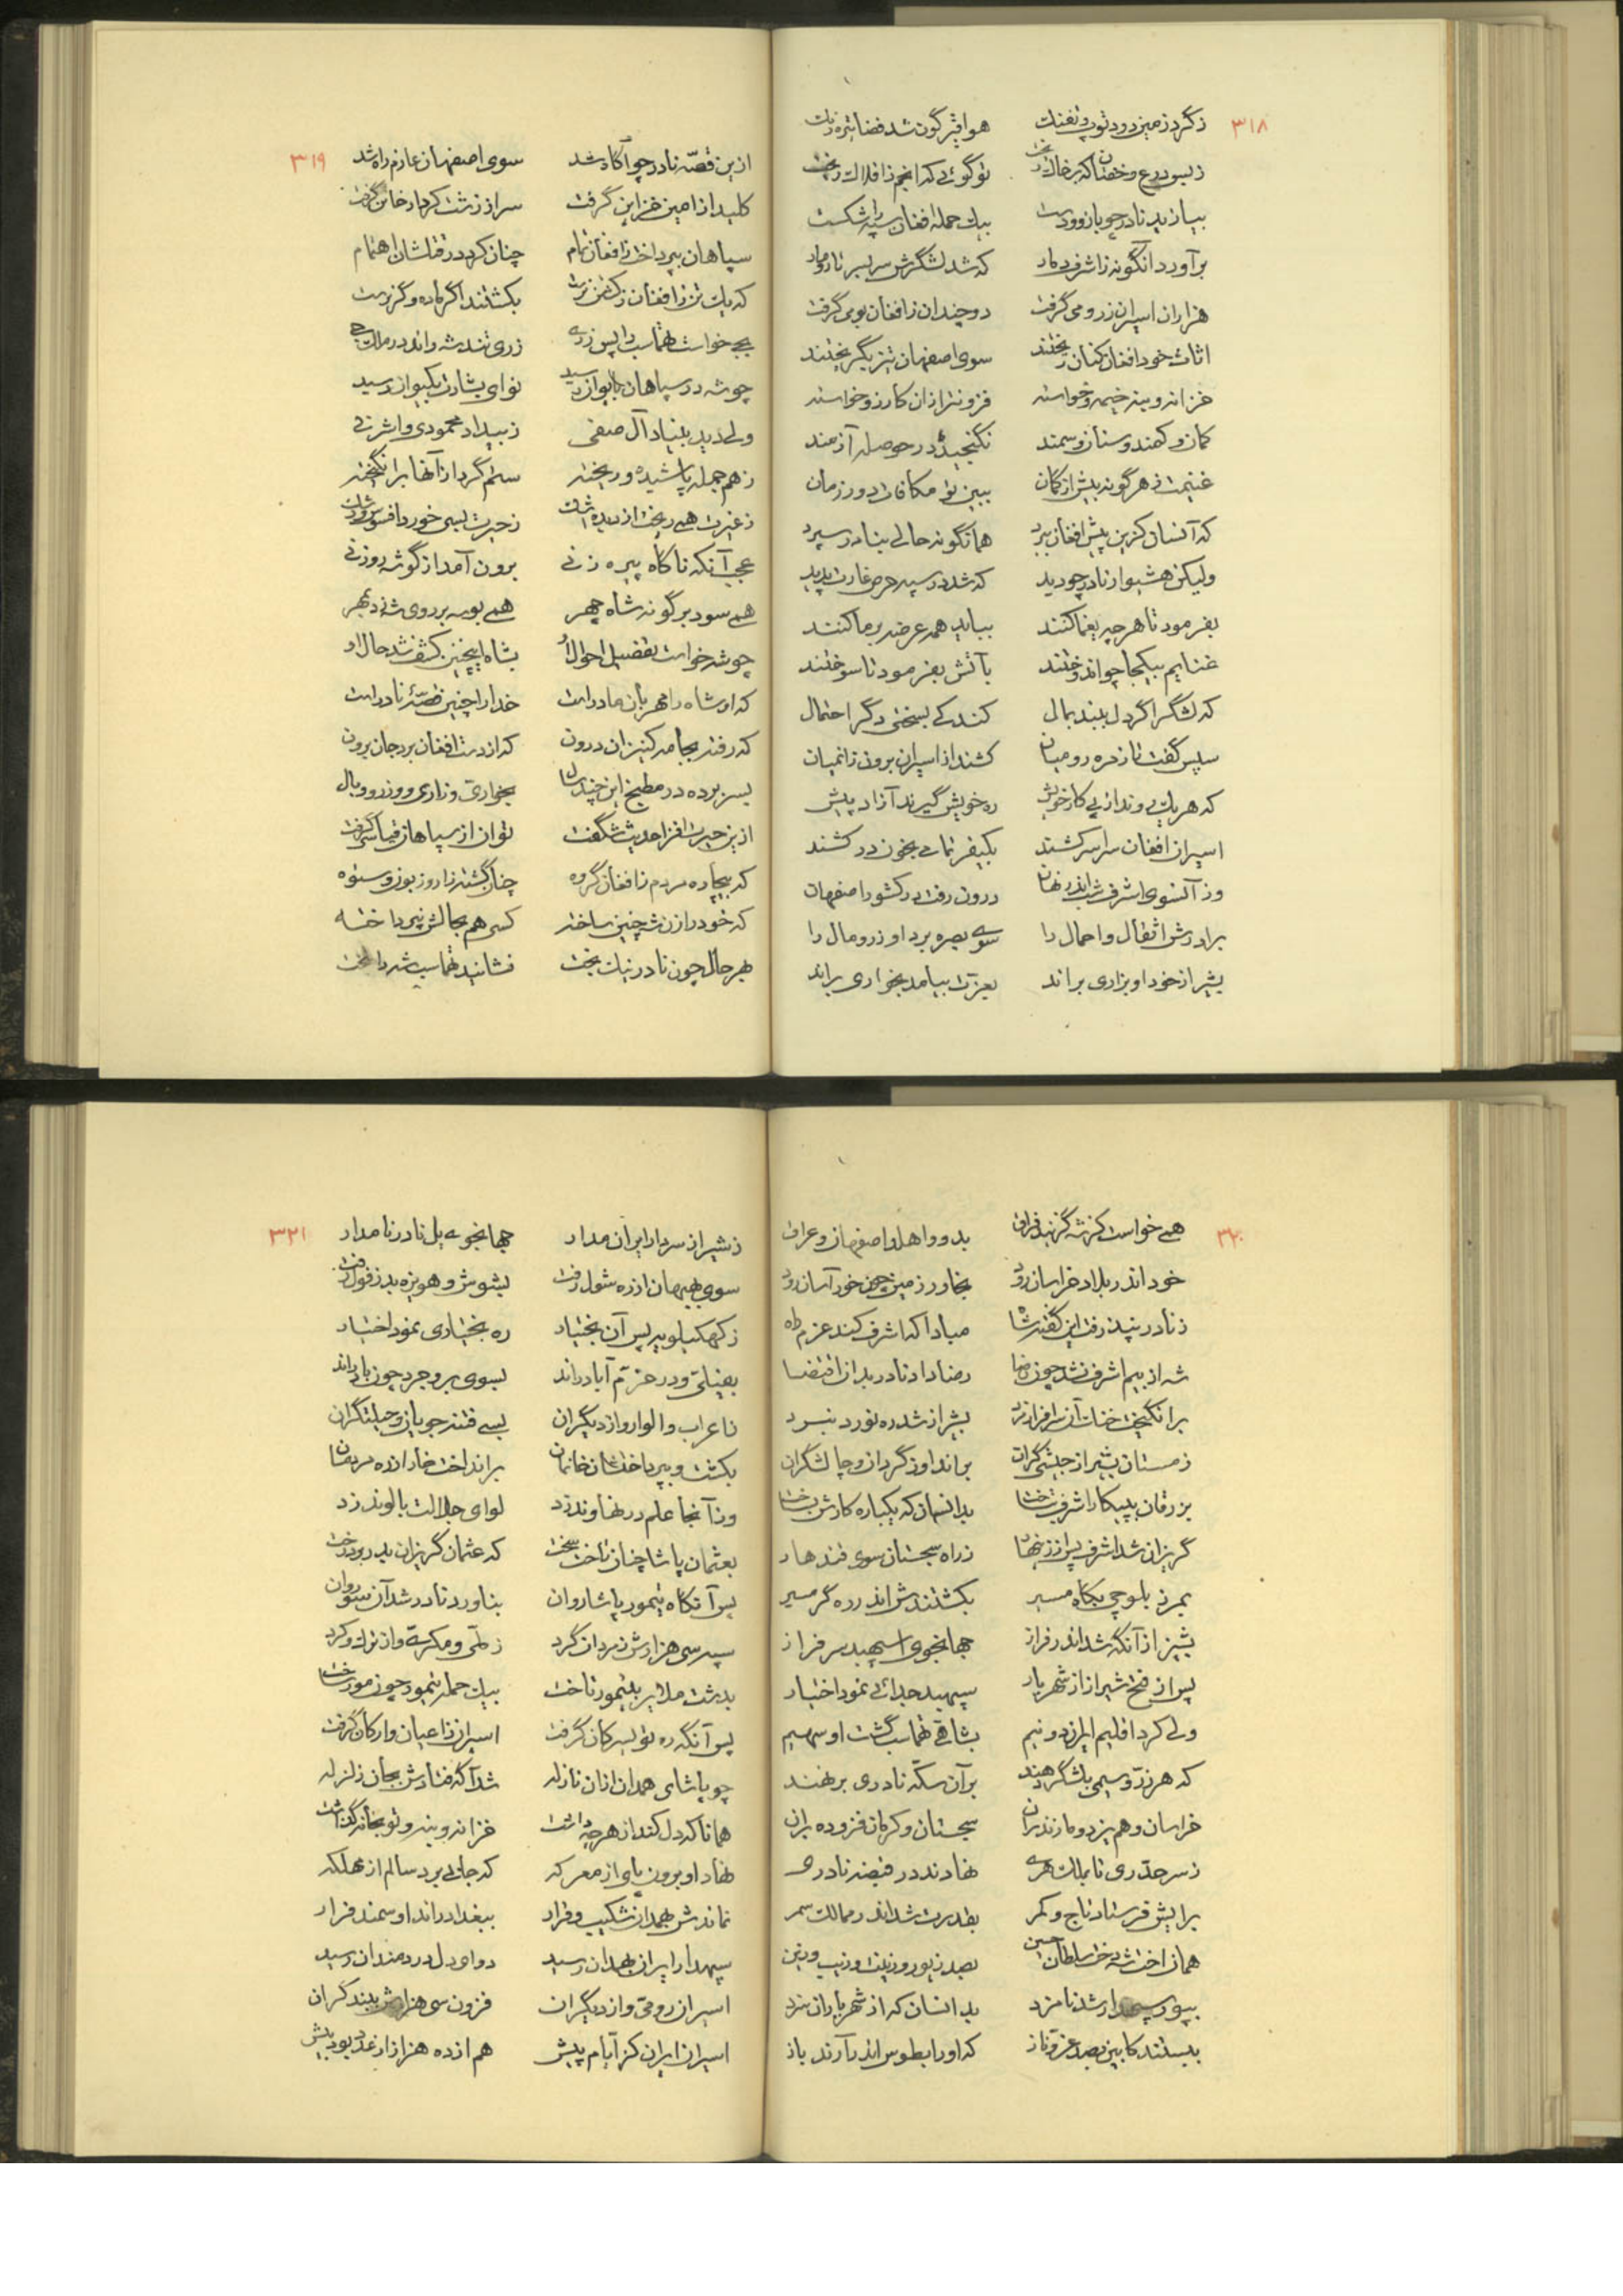 ۳۱۸
ز گرد زمین و دود توپ و تفنگ هوا قیرگون شد فضا تیره رنگ
ز بس درع و خفتان که بر خاک ریخت تو گوئی که انجم ز افلاک ریخت
بیازید نادر چو بازوو دست بیک حمله افغان سپه را شکست
برآورد آنگونه ز اشرف دمار که شد لشگرش سربسر تار و مار
هزاران اسیران ز رومی گرفت دو چندان ز افغان بومی گرفت
اثاث خود افغان کنان ریختند سوی اصفهان تیز بگریختند
خزانه و بنه خیمه و خواسته فزونتر از آن کارزو خواسته
کمان و کمند و سنان و سمند نگنجید در حوصله آزمند
غنیمت ز هر گونه بیش از گمان ببین تو مکافات دور زمان
که آنسان کزین پیش افغان ببرد همانگونه حالی بنادر سپرد
ولیکن هشیوار نادر چو دید که شد در سپه حرص غارت پدید
بفرمود تا هر چه یغما کنند بیاید همه عرضه بر ما کنند
غنایم بیکجا چو اندوختند بآتش بفرمود تا سوختند
که لشگر اگر دل ببندد بمال کند کی بسختی دگر احتمال
سپس گفت تا زمره رومیان کشند از اسیران برون زانمیان
که هر یک روند از پی کار خویش ره خویش گیرند آزاد پیش
اسیران افغان سراسر کشند بکیفر تمامی بخون درکشند
وز آنسوی اشرف شب اندر نهان درون رفت در کشور اصفهان
برادرش اثقال و احمال را سوی بصره برد او زر و مال را
بشیراز خود او بزاری براند بعزت بیامد بخواری براند
۳۱۹
ازین قصه نادر چو آگاه شد سوی اصفهان عازم راه شد
کلید از امین خزاین گرفت سر از زشت کردار خاین گرفت
سپاهان بپرداخت ز افغان تمام چنان کرد در قتلشان اهتمام
که یک تن ز افغان ز کشتن نرست بکشتند اگر ماده و گر نر است
بجی خواست طهماسب را پس ز ری ز ری تند شه راند در ملک جی
چو شه در سپاهان بایوان رسید نوای بشارت بکیوان رسید
ولی دید بنیاد آل صفی ز بیداد محمودی و اشرفی
ز هم جمله پاشیده و ریخته ستم گرد از آنها برانگیخته
ز غیرت همی ریخت از دیده اشک ز حیرت بسی خورد افسوس و رشک
عجب آنکه ناگاه پیره زنی برون آمد از گوشه روزنی
همی سود بر گونه شاه چهر همی بوسه بر روی شه زد بمهر
چو شه خواست تفصیل احوال او بشاه اینچنین کشف شد حال او
که او شاه را مهربان مادر است خدا را چنین قصّۀ نادر است
که رفته بجامه کنیزان درون که از دست افغان برد جان برون
بسر برده در مطبخ این چند سال بخواری و زاری و وزر و وبال
ازین حیرت افزا حدیث شگفت توان از سپاهان قیاسی گرفت
که بیچاره مردم ز افغان گروه چنان گشته زار و زبون و ستوه
که خود را زن شه چنین ساخته کسی هم بحالش نپرداخته
بهر حال چون نادر نیک بخت نشانید طهماسب شه را بتخت
۳۲۰
همی خواست کز شه گزیند فراق بدو واهلد اصفهان و عراق
خود اندر بلاد خراسان رود بخاور زمین چون خور آسان رود
ز نادر نپذرفت این گفته شاه مبادا که اشرف کند عزم راه
شه از بیم اشرف نشد چون رضا رضا داد نادر بدان اقتضا
برانگیخت خنگ آن سرافراز مرد بشیراز شد ره نورد نبرد
زمستان بشیراز جیشی گران براند او ز گردان و چالشگران
بزرقان به پیکار اشرف شتافت بدانسان که یکباره کارش بساخت
گریزان شد اشرف پس از زینهار ز راه سجستان سوی قندهار
بمرز بلوچی بگاه مسیر بکشتندش اندر ره گرمسیر
بشیراز آنگه شد اندر فراز جهانجوی اسپهبد سرفراز
پس از فتح شیراز از شهریار سپهبد جدائی نمود اختیار
ولی کرد اقلیم ایران دو نیم بشاهی طهماسب گشت او سهیم
که هر زر و سیمی بلشگر دهند بر آن سکّه نادری بر نهند
خراسان و هم یزد و مازندران سجستان و کرمان فزوده بران
ز سرحد ری تا بملک هری نهادند در قبضه نادری
برایش فرستاد تاج و کمر بقدرت شد اندر ممالک سمر
همان اخت شه دخت سلطان حسین بصد زیور و زینت و زیب و زین
بپور سپهدار شد نامزد بدانسان که از شهریاران سزد
ببستند کابین بصد عزّ و ناز که او را بطوس اندر آرند باز
۳۲۱
ز شیراز سردار ایران مدار جهانجوی یل نادر نامدار
سوی بهبهان از ره شول رفت بشوش و هویزه بدزفول رفت
ز کهکیلویه پس آن بختیار ره بختیاری نمود اختیار
بفیلی و در خرّم آباد راند بسوی بروجرد چون باد راند
ز اعراب و الوار و از دیگران بسی فتنه جویان و حیلتگران
بکشت و بپرداختشان خانمان برانداخت خار از ره مردمان
وز آنجا علم در نهاوند زد لوای جلالت بالوند زد
بعثمان پاشا چنان تاخت سخت که عثمان گریزان بدر برد رخت
پس آنگاه تیمور پاشا روان بناورد نادر شد آن سو روان
سپه سی هزارش ز مردان گرد ز ملّی و مکری و از ترک و کرد
بدشت ملایر بتیمور تاخت بیک حمله تیمور چون مور ساخت
پس آنگه ره تویسرکان گرفت اسیران ز اعیان و ارکان گرفت
چو پاشای همدان از آن نازله شد آگه فتادش بجان زلزله
همانا که دل کند از هر چه داشت خزانه و بنه و توپخانه گذاشت
نهاد او برون پای از معرکه که جانی برد سالم از مهلکه
نماندش بهمدان شکیب و قرار ببغداد راند او سمند فرار
سپهدار ایران بهمدان رسید دوای دل دردمندان رسید
اسیران رومی و از دیگران فزون سی هزارش ببند گران
اسیران ایران کز ایام پیش هم از ده هزار از عدد بود بیش